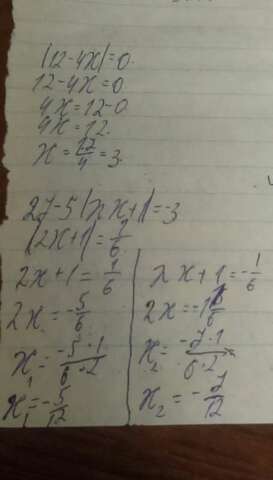 |12-4x|=0.
12-4x=0
4x=12-0
4x=12.
x=12/4=3.
27-5|2x+1|=-3
|2x+1|=1/6.
2x+1=1/6
2x=-5/6
x₁=-5·1/6·2
x₁=-5/12
2x+1=-1/6
2x=-1 1/6
x₂=-7·1/6·2
x₂=-7/12